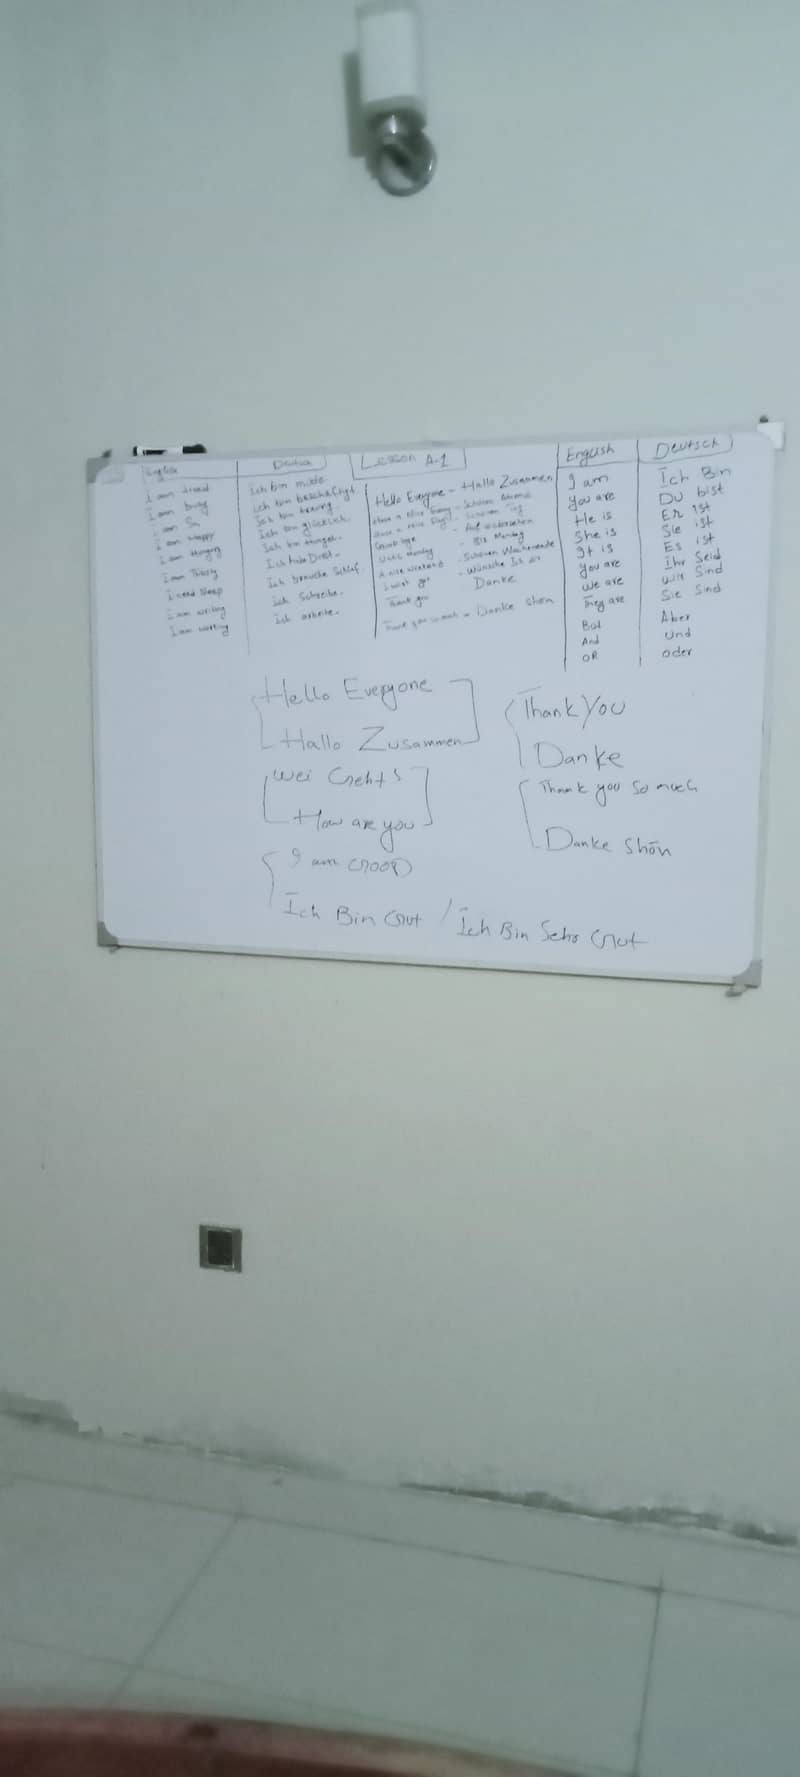 English
I am tired
I am busy
I am
I am Happy
I am Hungry
I am Thirsty
I need Sleep
I am writing
I am working
Deutsch
Ich bin müde
Ich bin beschäftigt
Ich bin traurig
Ich bin glücklich
Ich bin Hunger
Ich habe Durst
Ich brauche Schlaf
Ich Schreibe
Ich arbeite
Lesson A-1
Hello Everyone - Hallo Zusammen
Have a Nice - Schönen Abend
Have a nice - Schönen Tag
Good bye - Auf wiedersehen
Until Monday - Bis Montag
A nice weekend - Schönen Wochenende
I wish - Wünsche Ich
Thank you - Danke
Thank you so much - Danke shön
English
I am
You are
He is
She is
It is
You are
We are
They are
But
And
OR
Deutsch
Ich Bin
Du bist
Er ist
Sie ist
Es ist
Ihr Seid
Wir Sind
Sie Sind
Aber
Und
oder
Hello Everyone
Hallo Zusammen
Wei Geht's
How are you
I am GOOD
Ich Bin Gut / Ich Bin Sehr Gut
Thank You
Danke
Thank you so much
Danke Shön